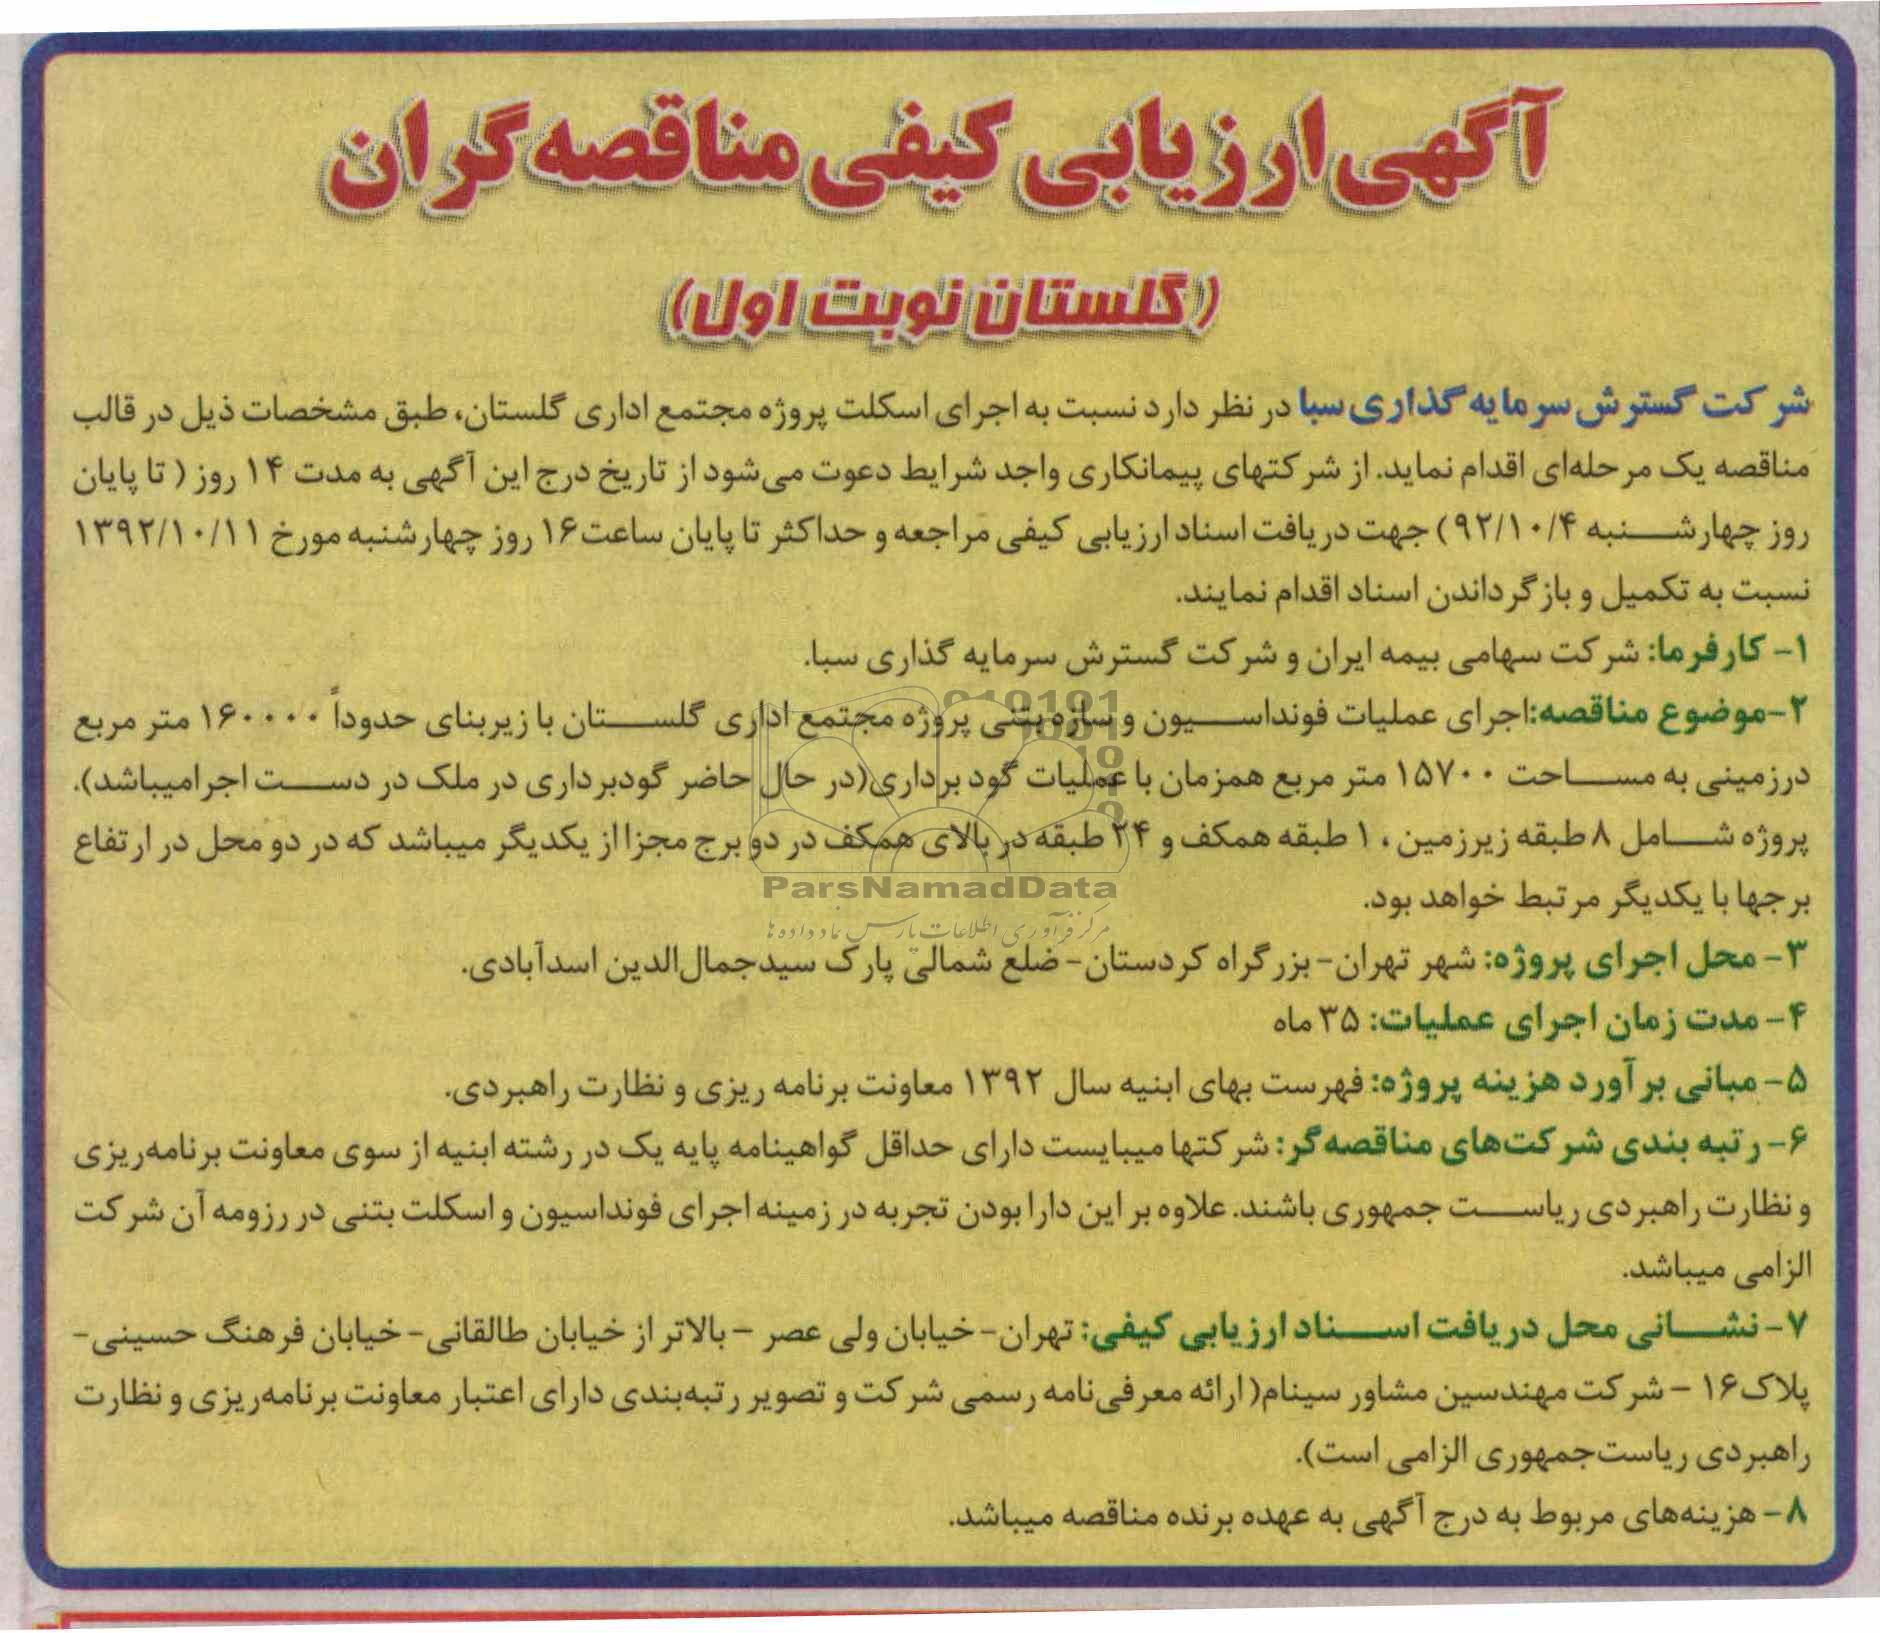 آگهی ارزیابی کیفی مناقصه‌گران
(گلستان نوبت اول)
شرکت گسترش سرمایه گذاری سبا در نظر دارد نسبت به اجرای اسکلت پروژه مجتمع اداری گلستان، طبق مشخصات ذیل در قالب
مناقصه یک مرحله‌ای اقدام نماید. از شرکتهای پیمانکاری واجد شرایط دعوت می‌شود از تاریخ درج این آگهی به مدت ۱۴ روز ( تا پایان
روز چهارشنبه ۹۲/۱۰/۴) جهت دریافت اسناد ارزیابی کیفی مراجعه و حداکثر تا پایان ساعت ۱۶ روز چهارشنبه مورخ ۱۳۹۲/۱۰/۱۱
نسبت به تکمیل و بازگرداندن اسناد اقدام نمایند.
۱- کارفرما: شرکت سهامی بیمه ایران و شرکت گسترش سرمایه گذاری سبا.
۲-موضوع مناقصه:اجرای عملیات فونداسیون و سازه بتنی پروژه مجتمع اداری گلستان با زیربنای حدوداً ۱۶۰۰۰۰ متر مربع
درزمینی به مساحت ۱۵۷۰۰ متر مربع همزمان با عملیات گود برداری(در حال حاضر گودبرداری در ملک در دست اجرامیباشد).
پروژه شامل ۸ طبقه زیرزمین ، ۱ طبقه همکف و ۲۴ طبقه در بالای همکف در دو برج مجزا از یکدیگر میباشد که در دو محل در ارتفاع
برجها با یکدیگر مرتبط خواهد بود.
ParsNamadData
مرکز فرآوری اطلاعات پارس نماد داده ها
۳- محل اجرای پروژه: شهر تهران- بزرگراه کردستان- ضلع شمالی پارک سیدجمال‌الدین اسدآبادی.
۴- مدت زمان اجرای عملیات: ۳۵ ماه
۵- مبانی برآورد هزینه پروژه: فهرست بهای ابنیه سال ۱۳۹۲ معاونت برنامه ریزی و نظارت راهبردی.
۶- رتبه بندی شرکت‌های مناقصه‌گر: شرکتها میبایست دارای حداقل گواهینامه پایه یک در رشته ابنیه از سوی معاونت برنامه‌ریزی
و نظارت راهبردی ریاست جمهوری باشند. علاوه بر این دارا بودن تجربه در زمینه اجرای فونداسیون و اسکلت بتنی در رزومه آن شرکت
الزامی میباشد.
۷- نشانی محل دریافت اسناد ارزیابی کیفی: تهران- خیابان ولی عصر – بالاتر از خیابان طالقانی- خیابان فرهنگ حسینی-
پلاک۱۶ – شرکت مهندسین مشاور سینام( ارائه معرفی‌نامه رسمی شرکت و تصویر رتبه‌بندی دارای اعتبار معاونت برنامه‌ریزی و نظارت
راهبردی ریاست‌جمهوری الزامی است).
۸- هزینه‌های مربوط به درج آگهی به عهده برنده مناقصه میباشد.